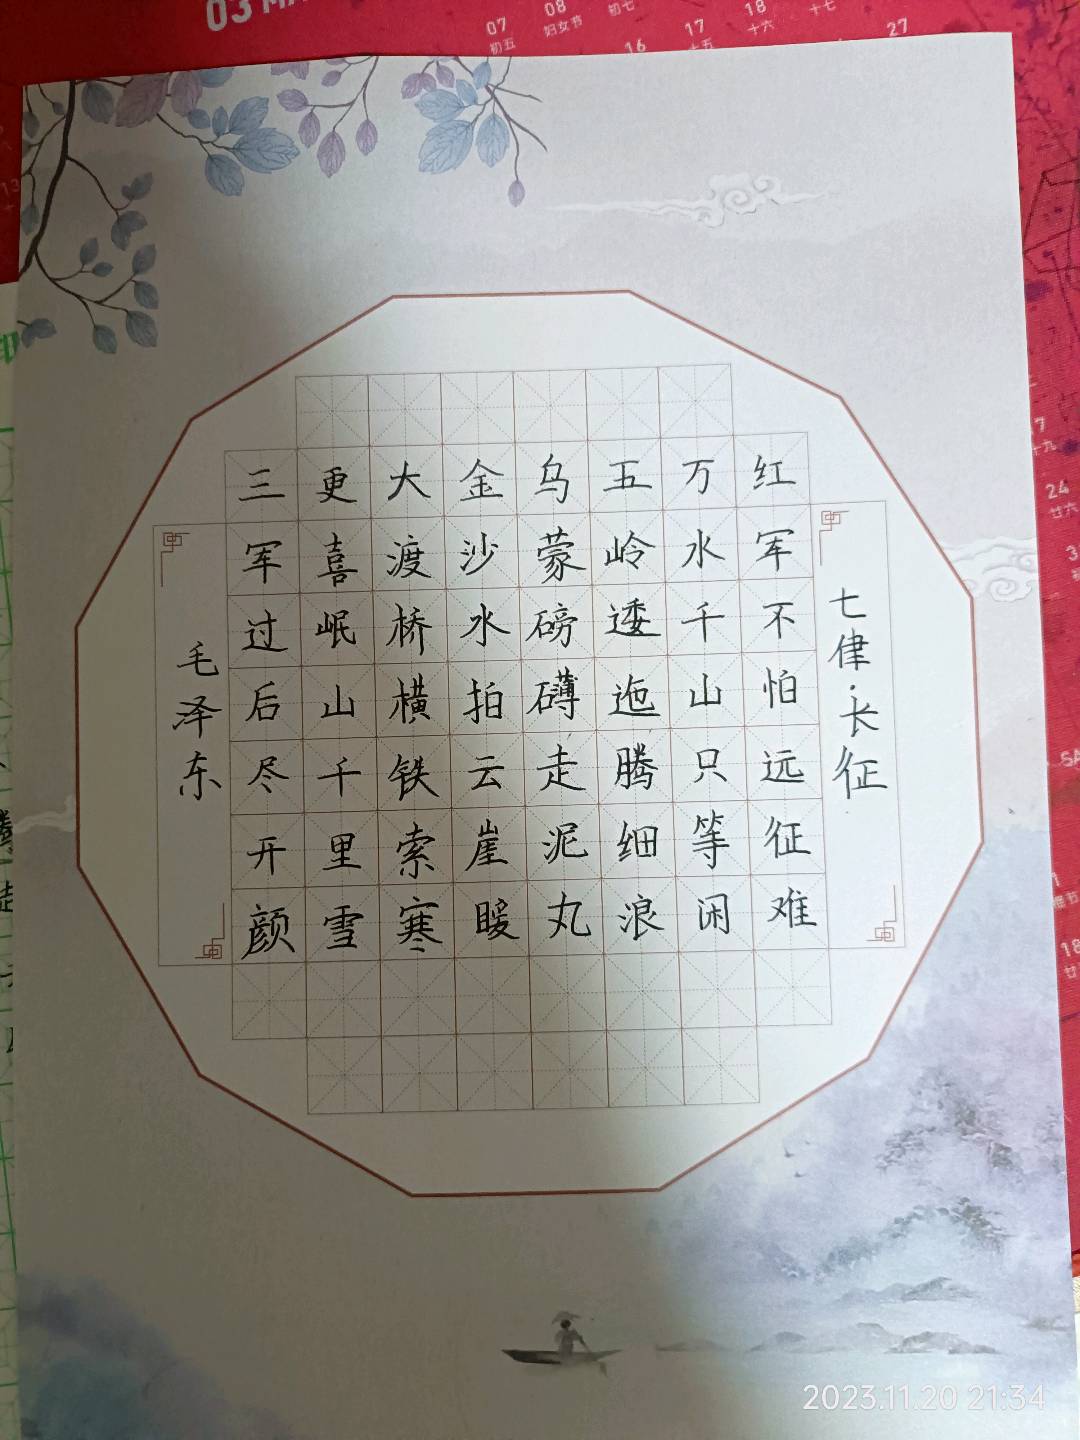 七律·长征
红军不怕远征难
万水千山只等闲
五岭逶迤腾细浪
乌蒙磅礴走泥丸
金沙水拍云崖暖
大渡桥横铁索寒
更喜岷山千里雪
三军过后尽开颜
毛泽东
03
07
初五
08
妇女节
初七
16
17
十五
18
十六
十七
27
24
廿六
2023.11.20 21:34